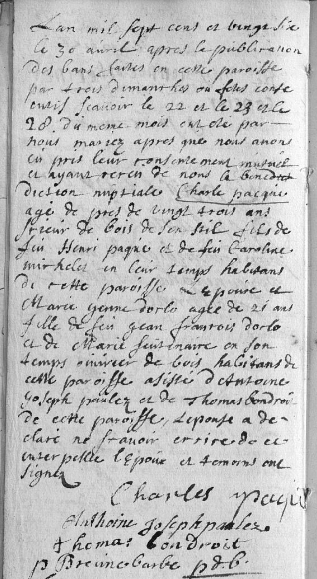 L'an mil sept cens et vingt six
le 30 avril apres la publication
des bans faites en cette paroisse
par trois dimanches ou fetes conse
cutifs scavoir le 22 et le 23 et le
28 du meme mois ont été par
nous mariez apres que nous avons
eu pris leur consentement mutuel
et ayant receu de nous la benedict
diction nuptiale Charle pacque
agé de pres de vingt trois ans
de bois de son stil fils de
feu Henri paque et de feu Caroline
michelet en leur temps habitans
de cette paroisse L'epoux et
Marie Jenne dorlo agee de 21 ans
fille de feu jean francois dorlo
et de Marie en son
temps ouvrier de bois habitans de
cette paroisse asisté d'Antoine
Joseph paulez et de Thomas bondroit
de cette paroisse, L'epouse a de
claré ne scavoir ecrire de ce
interpellé L'Epoux et temoins ont
signez
Charles paque
Anthoine joseph paulez
thomas bondroit
p